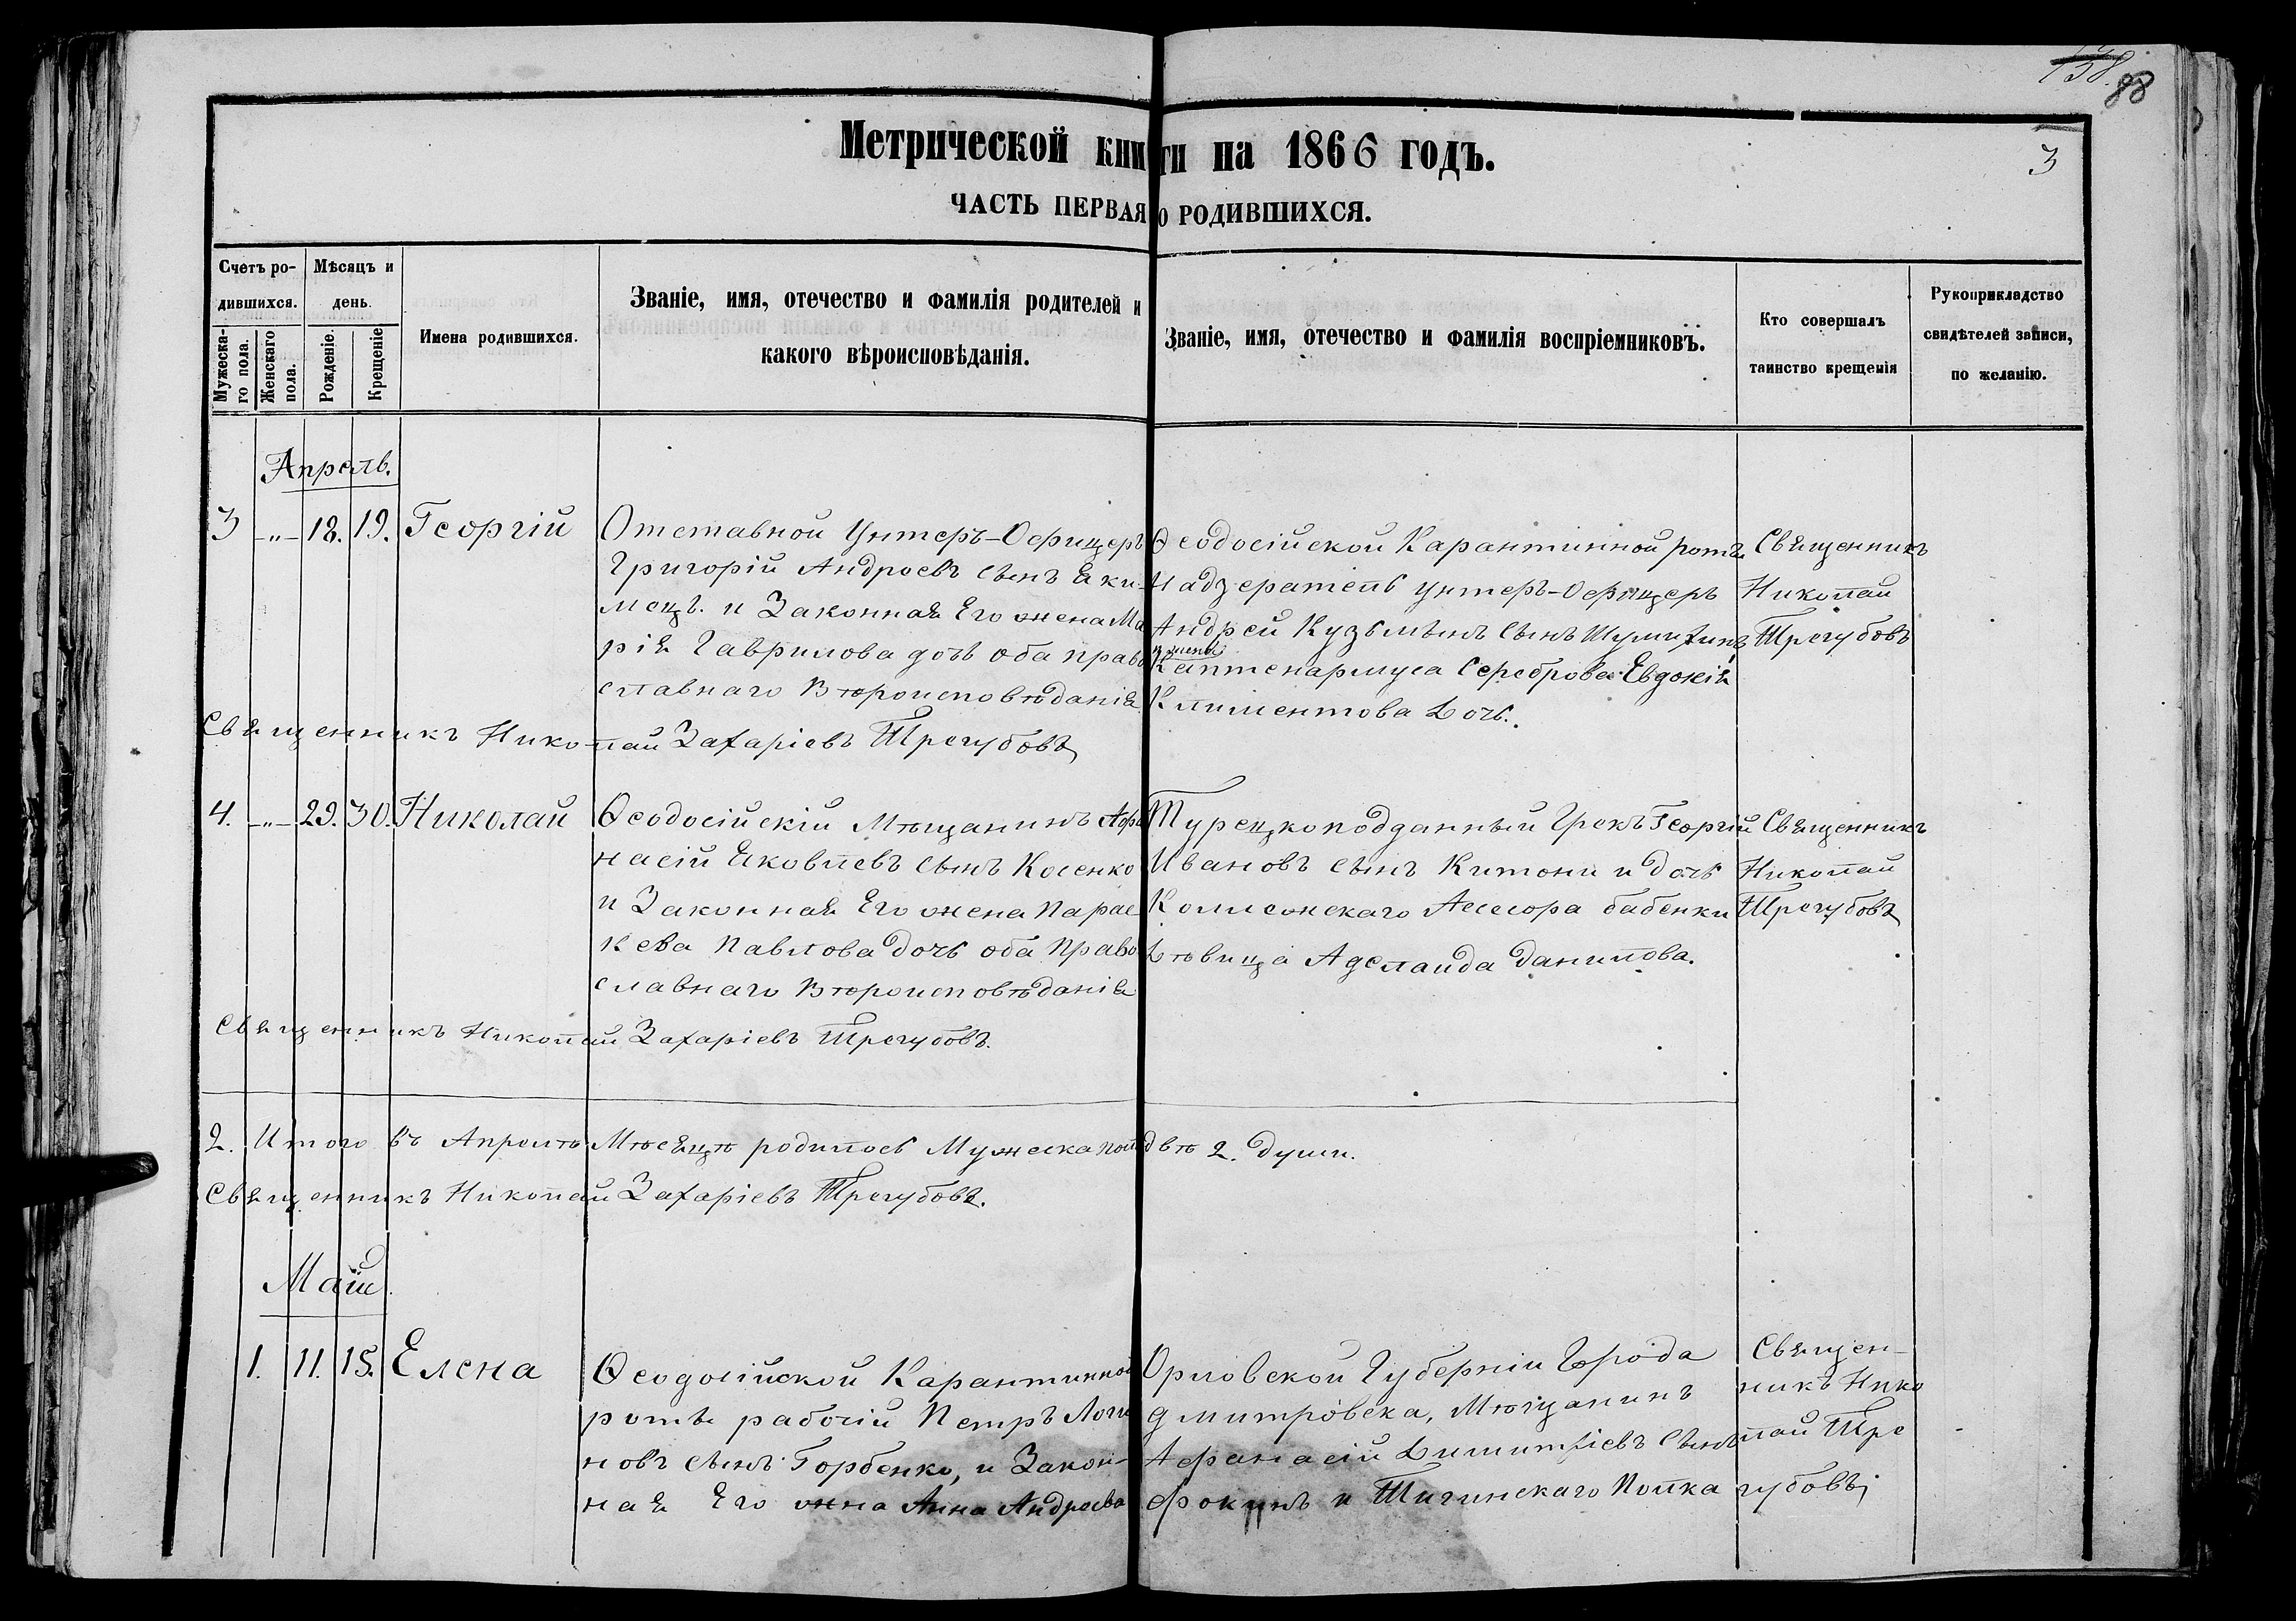 138. 88
Метрической книги на 1866 годъ.
3
ЧАСТЬ ПЕРВАЯ О РОДИВШИХСЯ.
Счетъ родившихся.
Мужескаго пола.
Женскаго пола.
Мѣсяцъ и день.
Рожденіе.
Крещеніе
Имена родившихся.
Званіе, имя, отечество и фамилія родителей и
какого вѣроисповѣданія.
Званіе, имя, отечество и фамилія воспріемниковъ.
Кто совершалъ
таинство крещенія
Рукоприкладство
свидѣтелей записи,
по желанію.
Апрель.
3 -"- 18. 19. Георгій
Отставной Унтеръ-Офицеръ
Григорій Андреевъ сынъ Яки-
мецъ. и Законная Его жена Ма
рія Гаврилова дочь оба право
славнаго Вѣроисповѣданія
Ѳеодосійской Карантинной роты
Надзератель Унтеръ-Офицеръ
Андрей Кузьминъ сынъ
и жена
Каптенармуса Сереброва Евдокія
Климентова Дочь.
Священникъ
Николай
Трегубовъ
Священникъ Николай Захаріевъ Трегубовъ
4. -"- 29. 30. Николай
Ѳеодосійскій Мѣщанинъ Афа
насій Яковлевъ сынъ Косенко
и Законная Его жена Парас
кева Павлова дочь оба Право
славнаго Вѣроисповѣданія
Турецкоподданный Грекъ Георгій
Ивановъ сынъ Китони и дочь
Колисонскаго Асесора бабенки
Дѣвица Аделаида Данилова.
Священникъ
Николай
Трегубовъ
Священникъ Николай Захаріевъ Трегубовъ.
2. Итого въ Апрелѣ Мѣсяцѣ родилось Мужеска пола двѣ 2. души.
Священникъ Николай Захаріевъ Трегубовъ.
Маій
1. 11. 15. Елена
Ѳеодосійской Карантинной
роты рабочій Петръ Логи
новъ сынъ Горбенко, и Закон-
ная Его жна Анна Андреева
Орловской Губерніи Города
Дмитровска, Мѣщанинъ
Афанасій Димитріевъ сынъ
Фокинъ и Тигинскаго Полка
Священ-
никъ Нико
лай Тре
губовъ